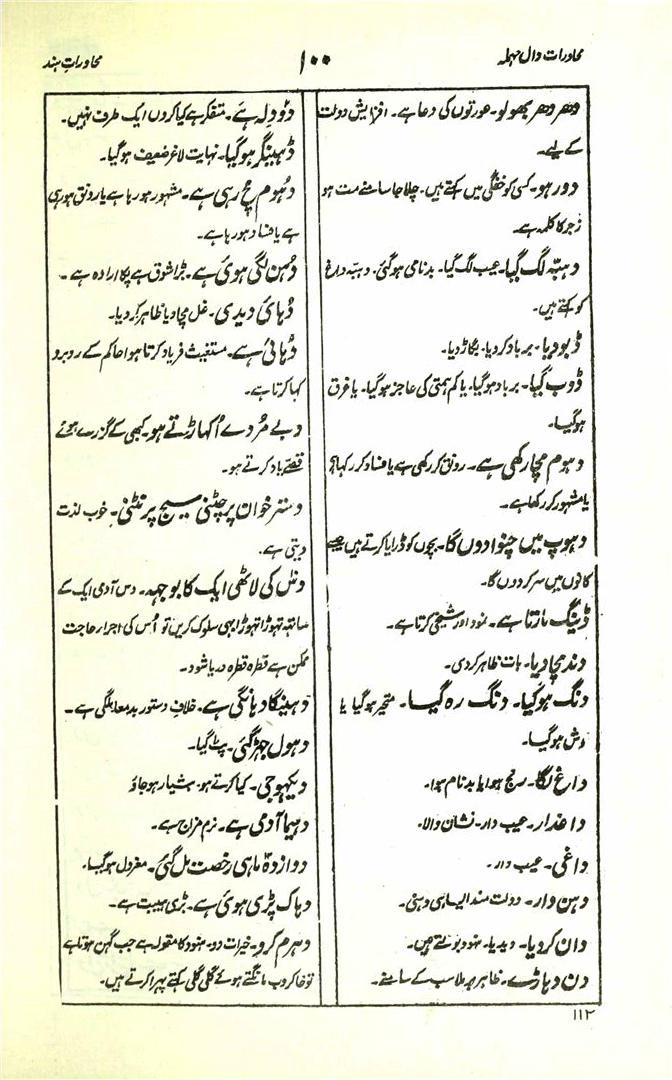 محاورات دال مہملہ
۱۰۰
محاوراتِ ہند
دھر دھر پھولو۔ عورتوں کی دعا ہے۔ افزایش دولت
کے لیے۔
دور ہو۔ کسی کو خفگی میں کہتے ہیں۔ چلا جا سامنے مت ہو
زجر کا کلمہ ہے۔
دہبّہ لگ گیا۔ عیب لگ گیا۔ بدنامی ہوگئی۔ دہبّہ داغ
کو کہتے ہیں۔
ڈبو دیا۔ برباد کر دیا۔ بگاڑ دیا۔
ڈوب گیا۔ برباد ہوگیا۔ یا کم ہمتی کی عاجز ہوگیا۔ یا غرق
ہوگیا۔
دہوم مچا رکھی ہے۔ رونق کر رکھی ہے یا فساد کر رکھا ہے
یا مشہور کر رکھا ہے۔
دہوپ میں چنوا دوں گا۔ بچوں کو ڈرایا کرتے ہیں جیسے
کانوں میں سر کر دوں گا۔
ڈینگ مارتا ہے۔ نمود اور شیخی کرتا ہے۔
دند مچا دیا۔ بات ظاہر کر دی۔
دنگ ہوگیا۔ دنگ رہ گیا۔ متحیر ہوگیا یا
ہوگیا۔
داغ لگا۔ رنج ہوا یا بدنام ہوا۔
داغدار۔ عیب دار۔ نشان والا۔
داغی۔ عیب دار۔
دہن وار۔ دولت مند ایسا ہی دہنی۔
دان کر دیا۔ دیدیا۔ ہنود بولتے ہیں۔
دن دہاڑے۔ ظاہر برملا سب کے سامنے۔
دو دلہ ہے۔ متفکر ہے کیا کروں ایک طرف نہیں۔
ڈہینگر ہوگیا۔ نہایت لاغر ضعیف ہوگیا۔
دہُوم مچ رہی ہے۔ مشہور ہو رہا ہے یا رونق ہو رہی
ہے یا فساد ہو رہا ہے۔
دُہن لگی ہوئی ہے۔ بڑا شوق ہے پکا ارادہ ہے۔
دُہائی دیدی۔ غل مچا دیا ظاہر کر دیا۔
دُہائی ہے۔ مستغیث فریاد کرتا ہوا حاکم کے روبرو
کہا کرتا ہے۔
دبے مُردے اُکہاڑتے ہو۔ کبھی کے گزرے ہوئے
قصّے یاد کرتے ہو۔
دسترخوان پر چٹنی سیج پر نٹنی۔ خوب لذت
دیتی ہے۔
دسؔ کی لاٹھی ایک کا بوجہہ۔ دس آدمی ایک کے
ساتہہ تہوڑا تہوڑا بہی سلوک کریں تو اُس کی اجراء حاجت
ممکن ہے قطرہ قطرہ دریا شود۔
دہینگا دہانگی ہے۔ خلافِ دستور بدمعاملگی ہے۔
دہول جہڑ گئی۔ پٹ گیا۔
دیکہو جی۔ کیا کرتے ہو۔ ہشیار ہو جاؤ
دہیما آدمی ہے۔ نرم مزاج ہے۔
دوازدہ ماہی رخصت مل گئی۔ معزول ہوگیا۔
دہاک پڑی ہوئی ہے۔ بڑی ہیبت ہے۔
دہرم کرو۔ خیرات دو۔ ہنود کا مقولہ ہے جب گہن ہوتا ہے
تو خاکروب مانگتے ہوئے گلی گلی کہتے پہرا کرتے ہیں۔
۱۱۲